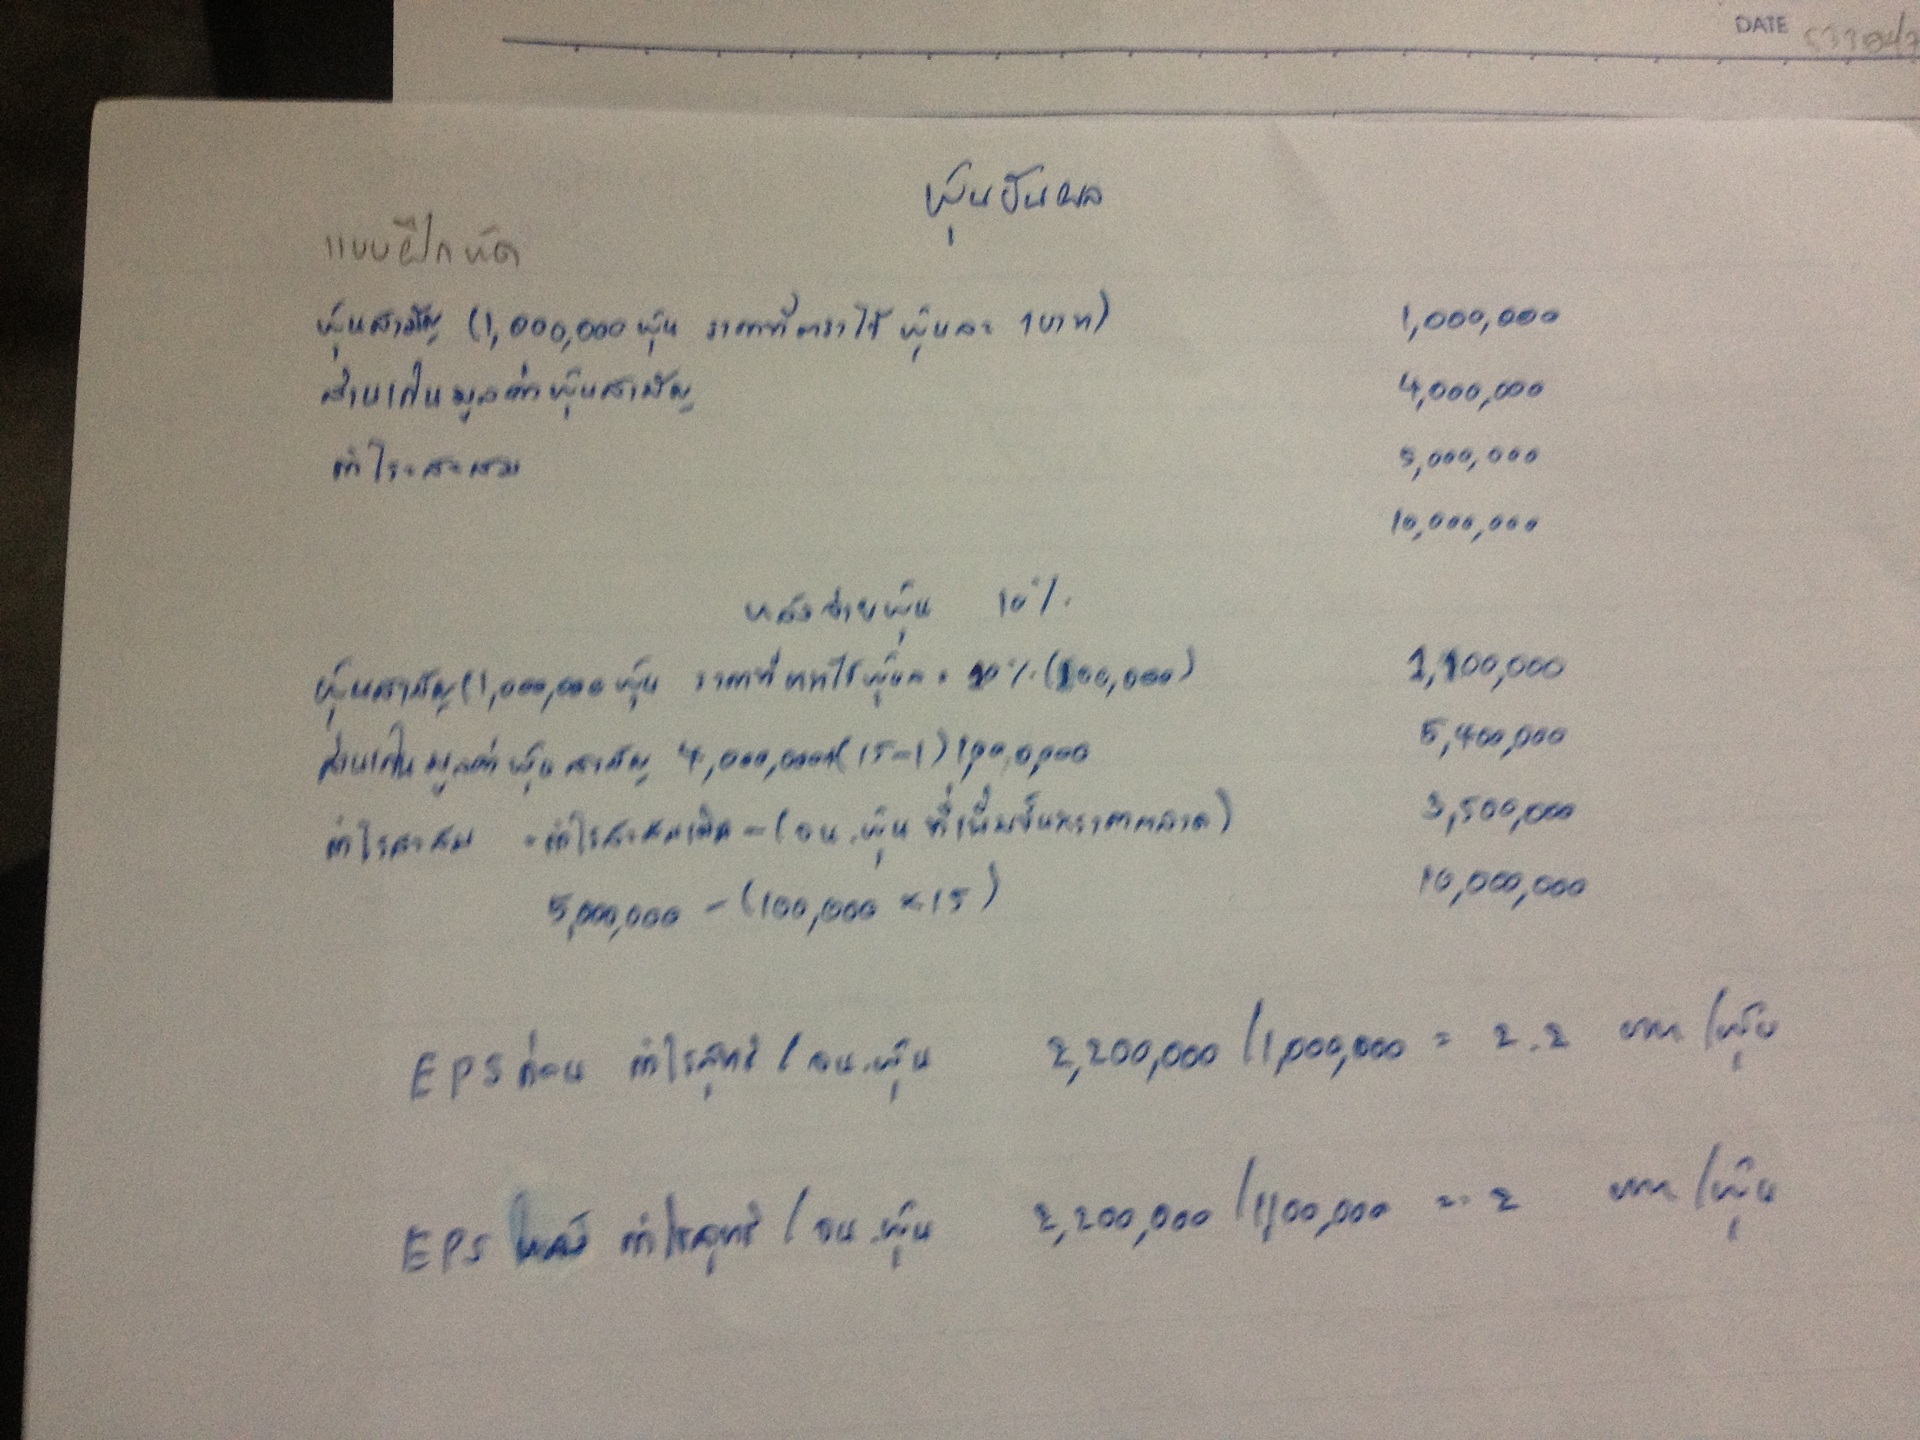 DATE
หุ้นปันผล
แบบฝึกหัด
หุ้นสามัญ (1,000,000 หุ้น ราคาที่ตราไว้ หุ้นละ 1 บาท) 1,000,000
ส่วนเกินมูลค่าหุ้นสามัญ 4,000,000
กำไรสะสม 5,000,000
10,000,000
หลังจ่ายหุ้น 10%
หุ้นสามัญ (1,000,000 หุ้น ราคาที่ 10% (100,000) 1,100,000
ส่วนเกินมูลค่าหุ้นสามัญ 4,000,000+(15-1)100,000 5,400,000
กำไรสะสม = กำไรสะสมเดิม - (จน.หุ้น ที่เพิ่มขึ้นxราคาตลาด) 3,500,000
5,000,000 - (100,000 x 15) 10,000,000
EPS ก่อน กำไรสุทธิ / จน.หุ้น 2,200,000 / 1,000,000 = 2.2 บาท / หุ้น
EPS หลัง กำไรสุทธิ / จน.หุ้น 2,200,000 / 1,100,000 = 2 บาท / หุ้น